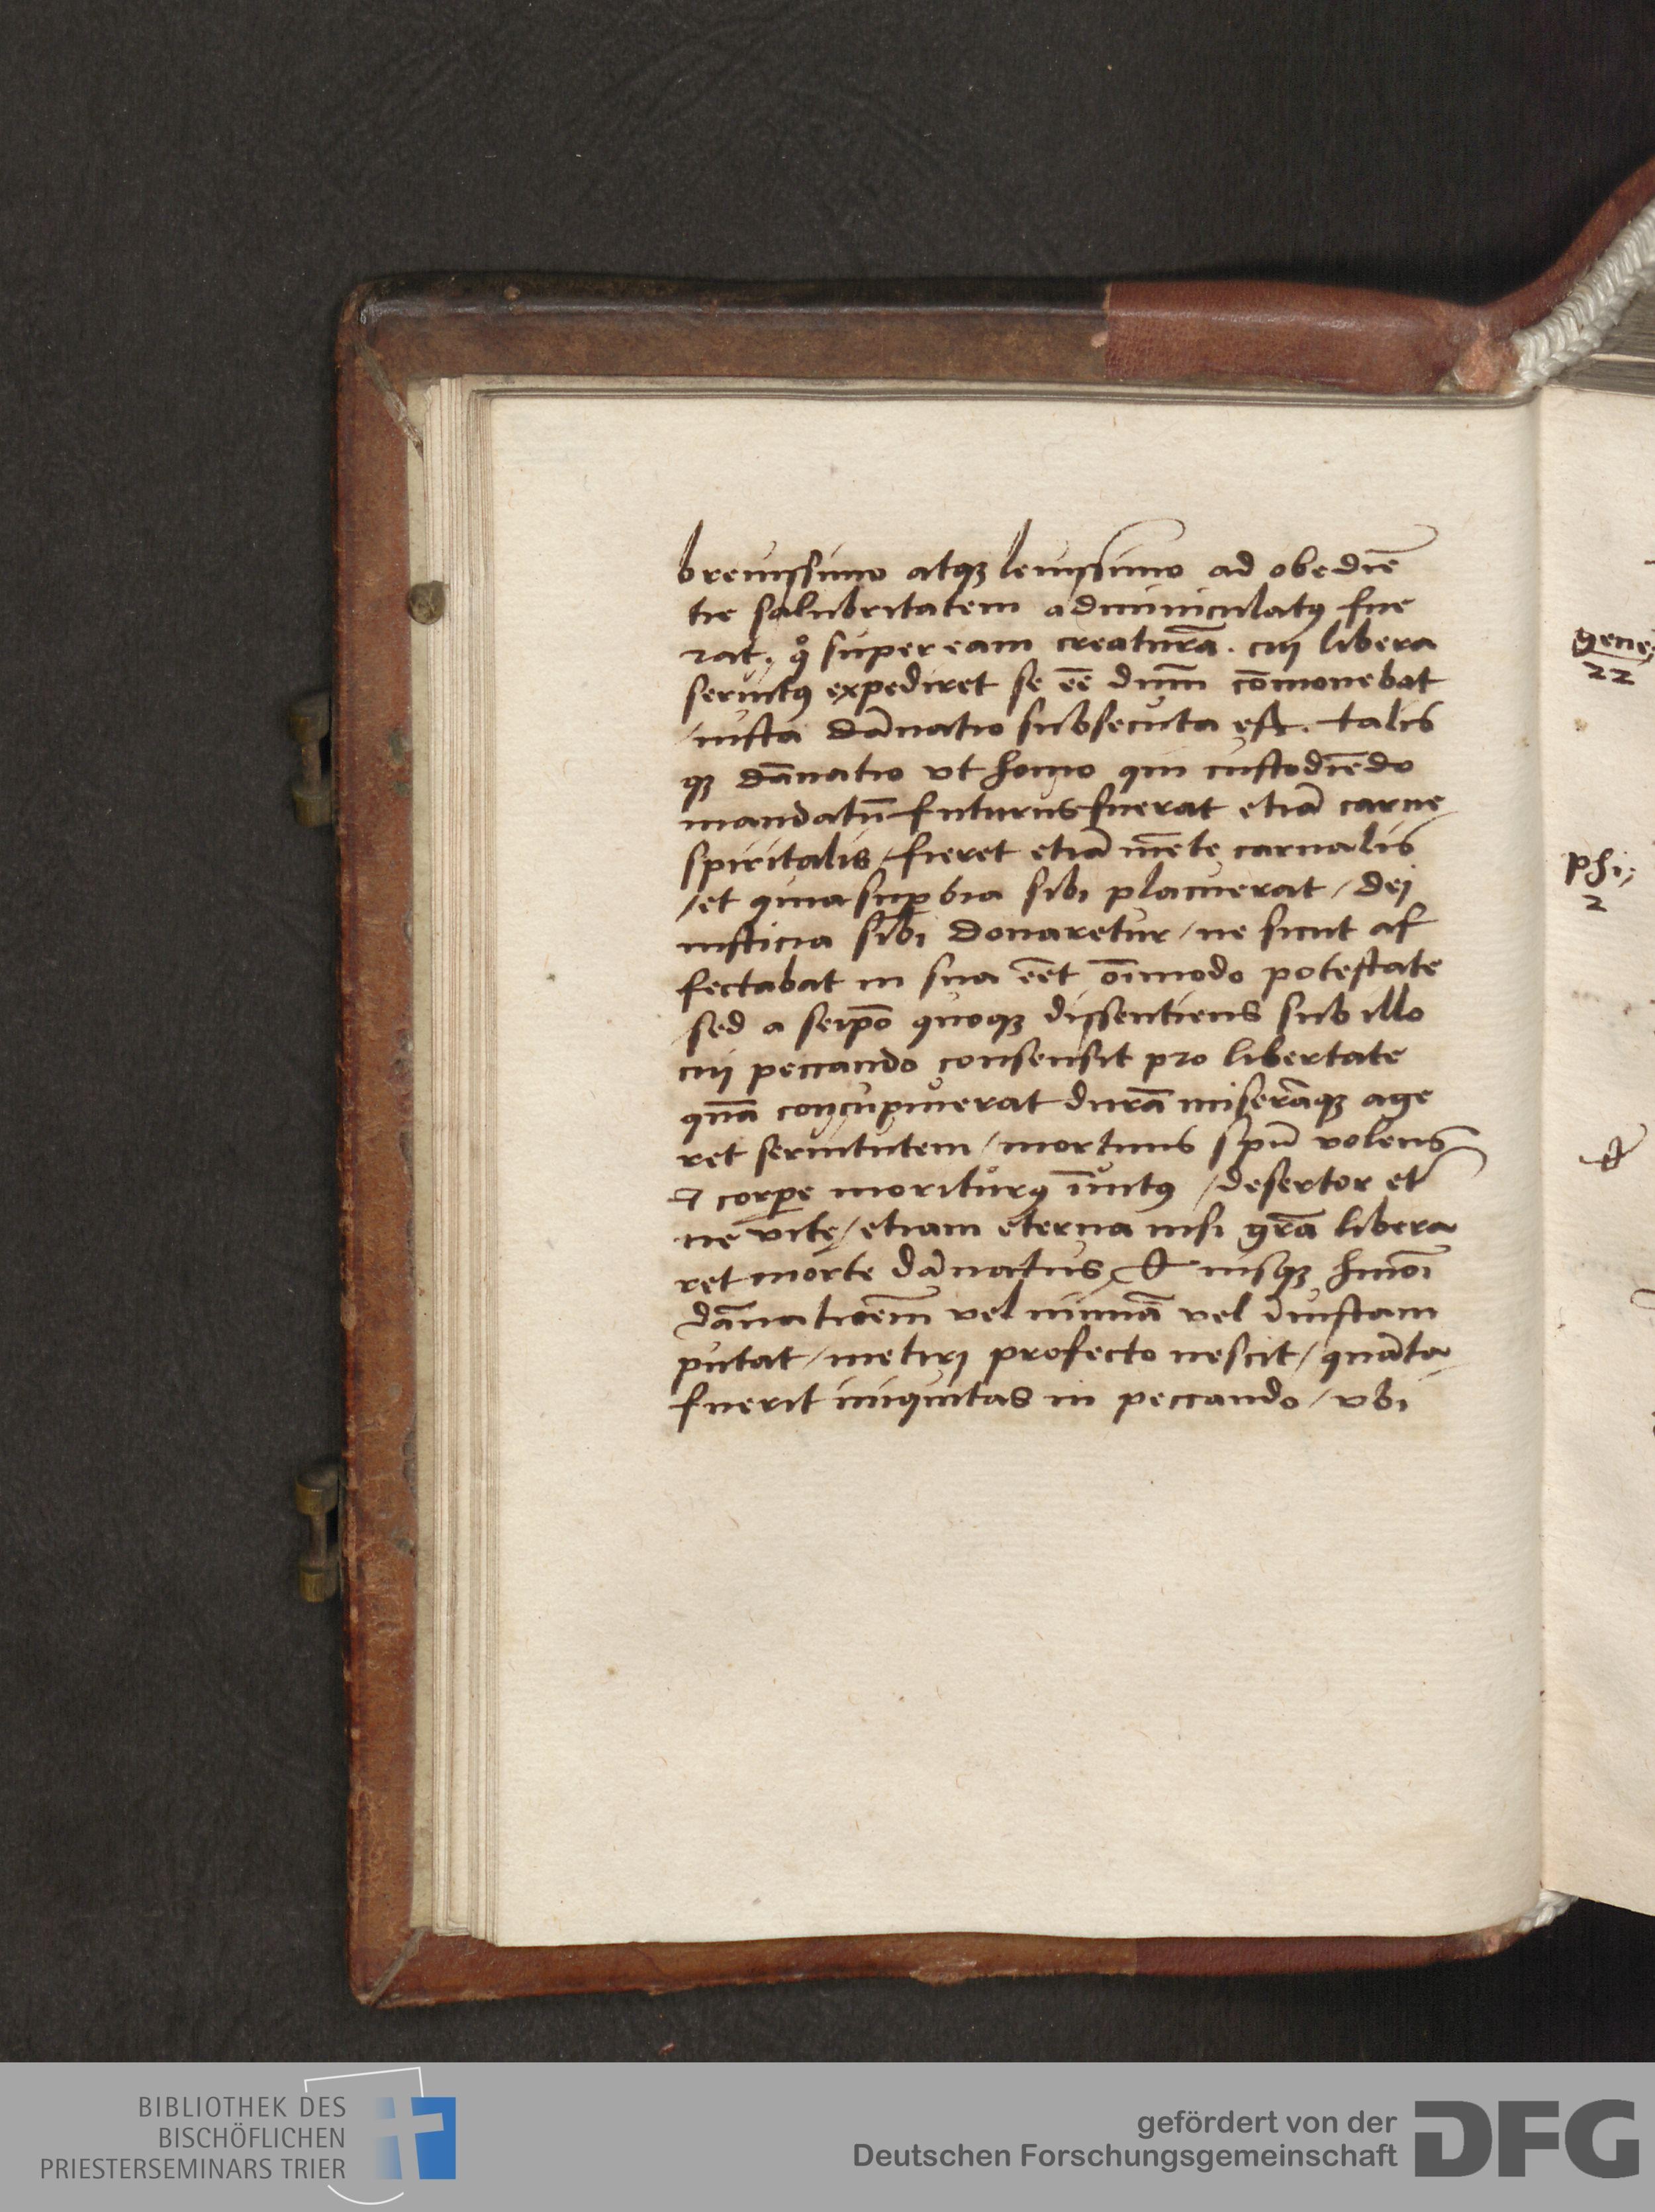 breuissimo atqꝫ leuissimo ad obediē
tie salubritatem adminiculatꝰ fue
rat, qͦ super eam creaturā. cuj libera
seruitꝰ expediret se eē dnm̄ cōmonebat
/iusta dānatio subsecuta est. talis
qꝫ dānatio vt homo qui custodiēdo
mandatū futurus fuerat etiā carne
spiritalis/fieret etiā mēte carnalis
/et quia suꝑbia sibi placuerat/dej
iusticia sibi donaretur/ne sicut af
fectabat in sua eēt oīmodo potestate
sed a seip̄o quoqꝫ dissentiens sub illo
cuj peccando consensit pro libertate
quā concupiuerat durā miserāqꝫ age
ret seruitutem/mortuus spū volens
⁊ corꝑe moriturꝰ īuitꝰ /desertor et̄
ne vite/etiam eterna nisi gr̄a libera
ret morte dānatus, & uisqꝫ hmōi
dānatioēm vel nimiā vel īiustam
putat/metirj profecto nescit/quāta
fuerit iniquitas in peccando/vbi
gene;
22
phi;
2
&
BIBLIOTHEK DES
BISCHÖFLICHEN
PRIESTERSEMINARS TRIER
gefördert von der
Deutschen Forschungsgemeinschaft
DFG